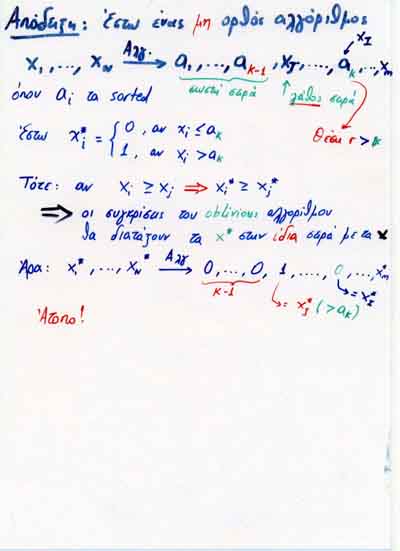 Απόδειξη: Έστω ένας μη ορθός αλγόριθμος
x_I
x_1, ..., x_N —Αλγ.→ a_1, ..., a_{k-1}, x_J, ..., a_k, ..., x_m
όπου a_i τα sorted σωστή σειρά λάθος σειρά
Θέση r > k
Έστω x_i^* = { 0, αν x_i ≤ a_k
1, αν x_i > a_k
Τότε: αν x_i ≥ x_j ⇒ x_i^* ≥ x_j^*
⇒ οι συγκρίσεις του oblivious αλγορίθμου
θα διατάξουν τα x^* στην ίδια σειρά με τα x
Άρα: x_1^*, ..., x_N^* —Αλγ→ 0, ..., 0, 1, ...., 0, ... x_m^*
k-1 = x_I^*
= x_J^* (> a_k)
Άτοπο!